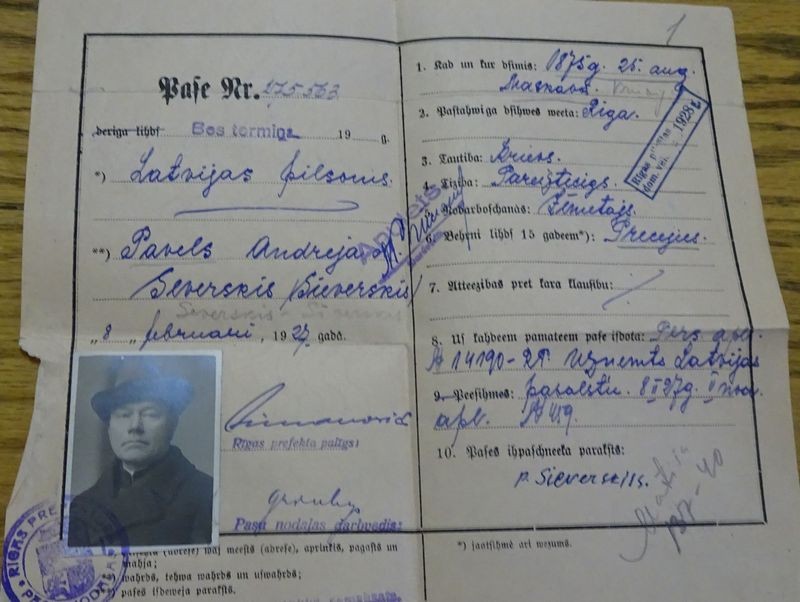 1
Pase Nr. 175563
deriga lihds Bes termiņa 19 g.
*) Latvijas pilsonis.
**) Pavels Andreja d.
Severskis (Sieverskis)
Severskis - Sieverskis
"8" februarī, 1927. gadā.
Rīgas prefekta palīgs:
Pasu nodaļas darbvedis:
(adrese) waj meests (adrese), aprinķis, pagasts un
mahja;
wahrds, tehwa wahrds un uswahrds;
pases isdeweja paraksts.
RIGAS PRE
1. Kad un kur dsimis: 1875g. 25. aug.
Maskavā.
2. Pastahwiga dsihwes weeta: Rīga.
Rigas
1928
3. Tautiba: Krievs.
4. Tiziba: Pareizticīgs.
5. Nodarboschanás:
6. Behrni lihds 15 gadeem*): Precejies.
7. Atteezibas pret kara klausibu:
8. Us kahdeem pamateem pase isdota: Pers. apl.
№ 14190-27. Uzņemts Latvijas
9. Peesihmes: pavalstn. 8 II 27g.
apl. № 419.
10. Pases ihpaschneeka paraksts:
P. Sieverskis.
*) jaatsihmē arī wezums.